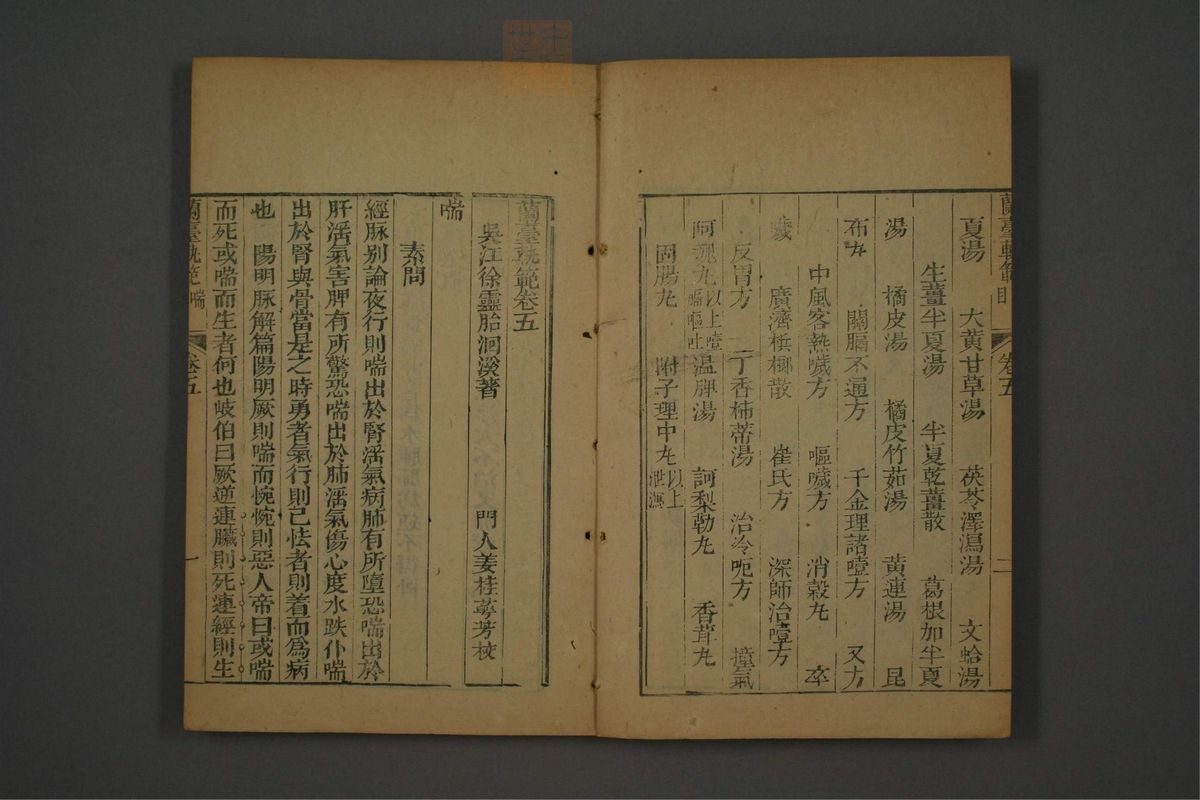 蘭臺軌範目 卷五 二
夏湯 大黃甘草湯 茯苓澤瀉湯 文蛤湯
生薑半夏湯 半夏乾薑散 葛根加半夏
湯 橘皮湯 橘皮竹茹湯 黃連湯 昆
布丸 關膈不通方 千金理諸噎方 又方
中風客熱噦方 嘔噦方 消穀丸 卒
噦 廣濟檳榔散 崔氏方 深師治噎方
反胃方 丁香柿蒂湯 治冷呃方 撞氣
阿魏丸以上噎膈嘔吐 溫脾湯 訶梨勒丸 香茸丸
固腸丸 附子理中丸以上泄瀉
蘭臺軌範卷五
吳江徐靈胎洄溪著 門人姜桂萼芳校
喘
素問
經脉别論夜行則喘出於腎滛氣病肺有所墮恐喘出於
肝滛氣害脾有所驚恐喘出於肺滛氣傷心度水跌仆喘
出於腎與骨當是之時勇者氣行則已怯者則着而爲病
也 陽明脉解篇陽明厥則喘而惋惋則惡人帝曰或喘
而死或喘而生者何也岐伯曰厥逆連臟則死連經則生
蘭臺軌範 喘 卷五 一